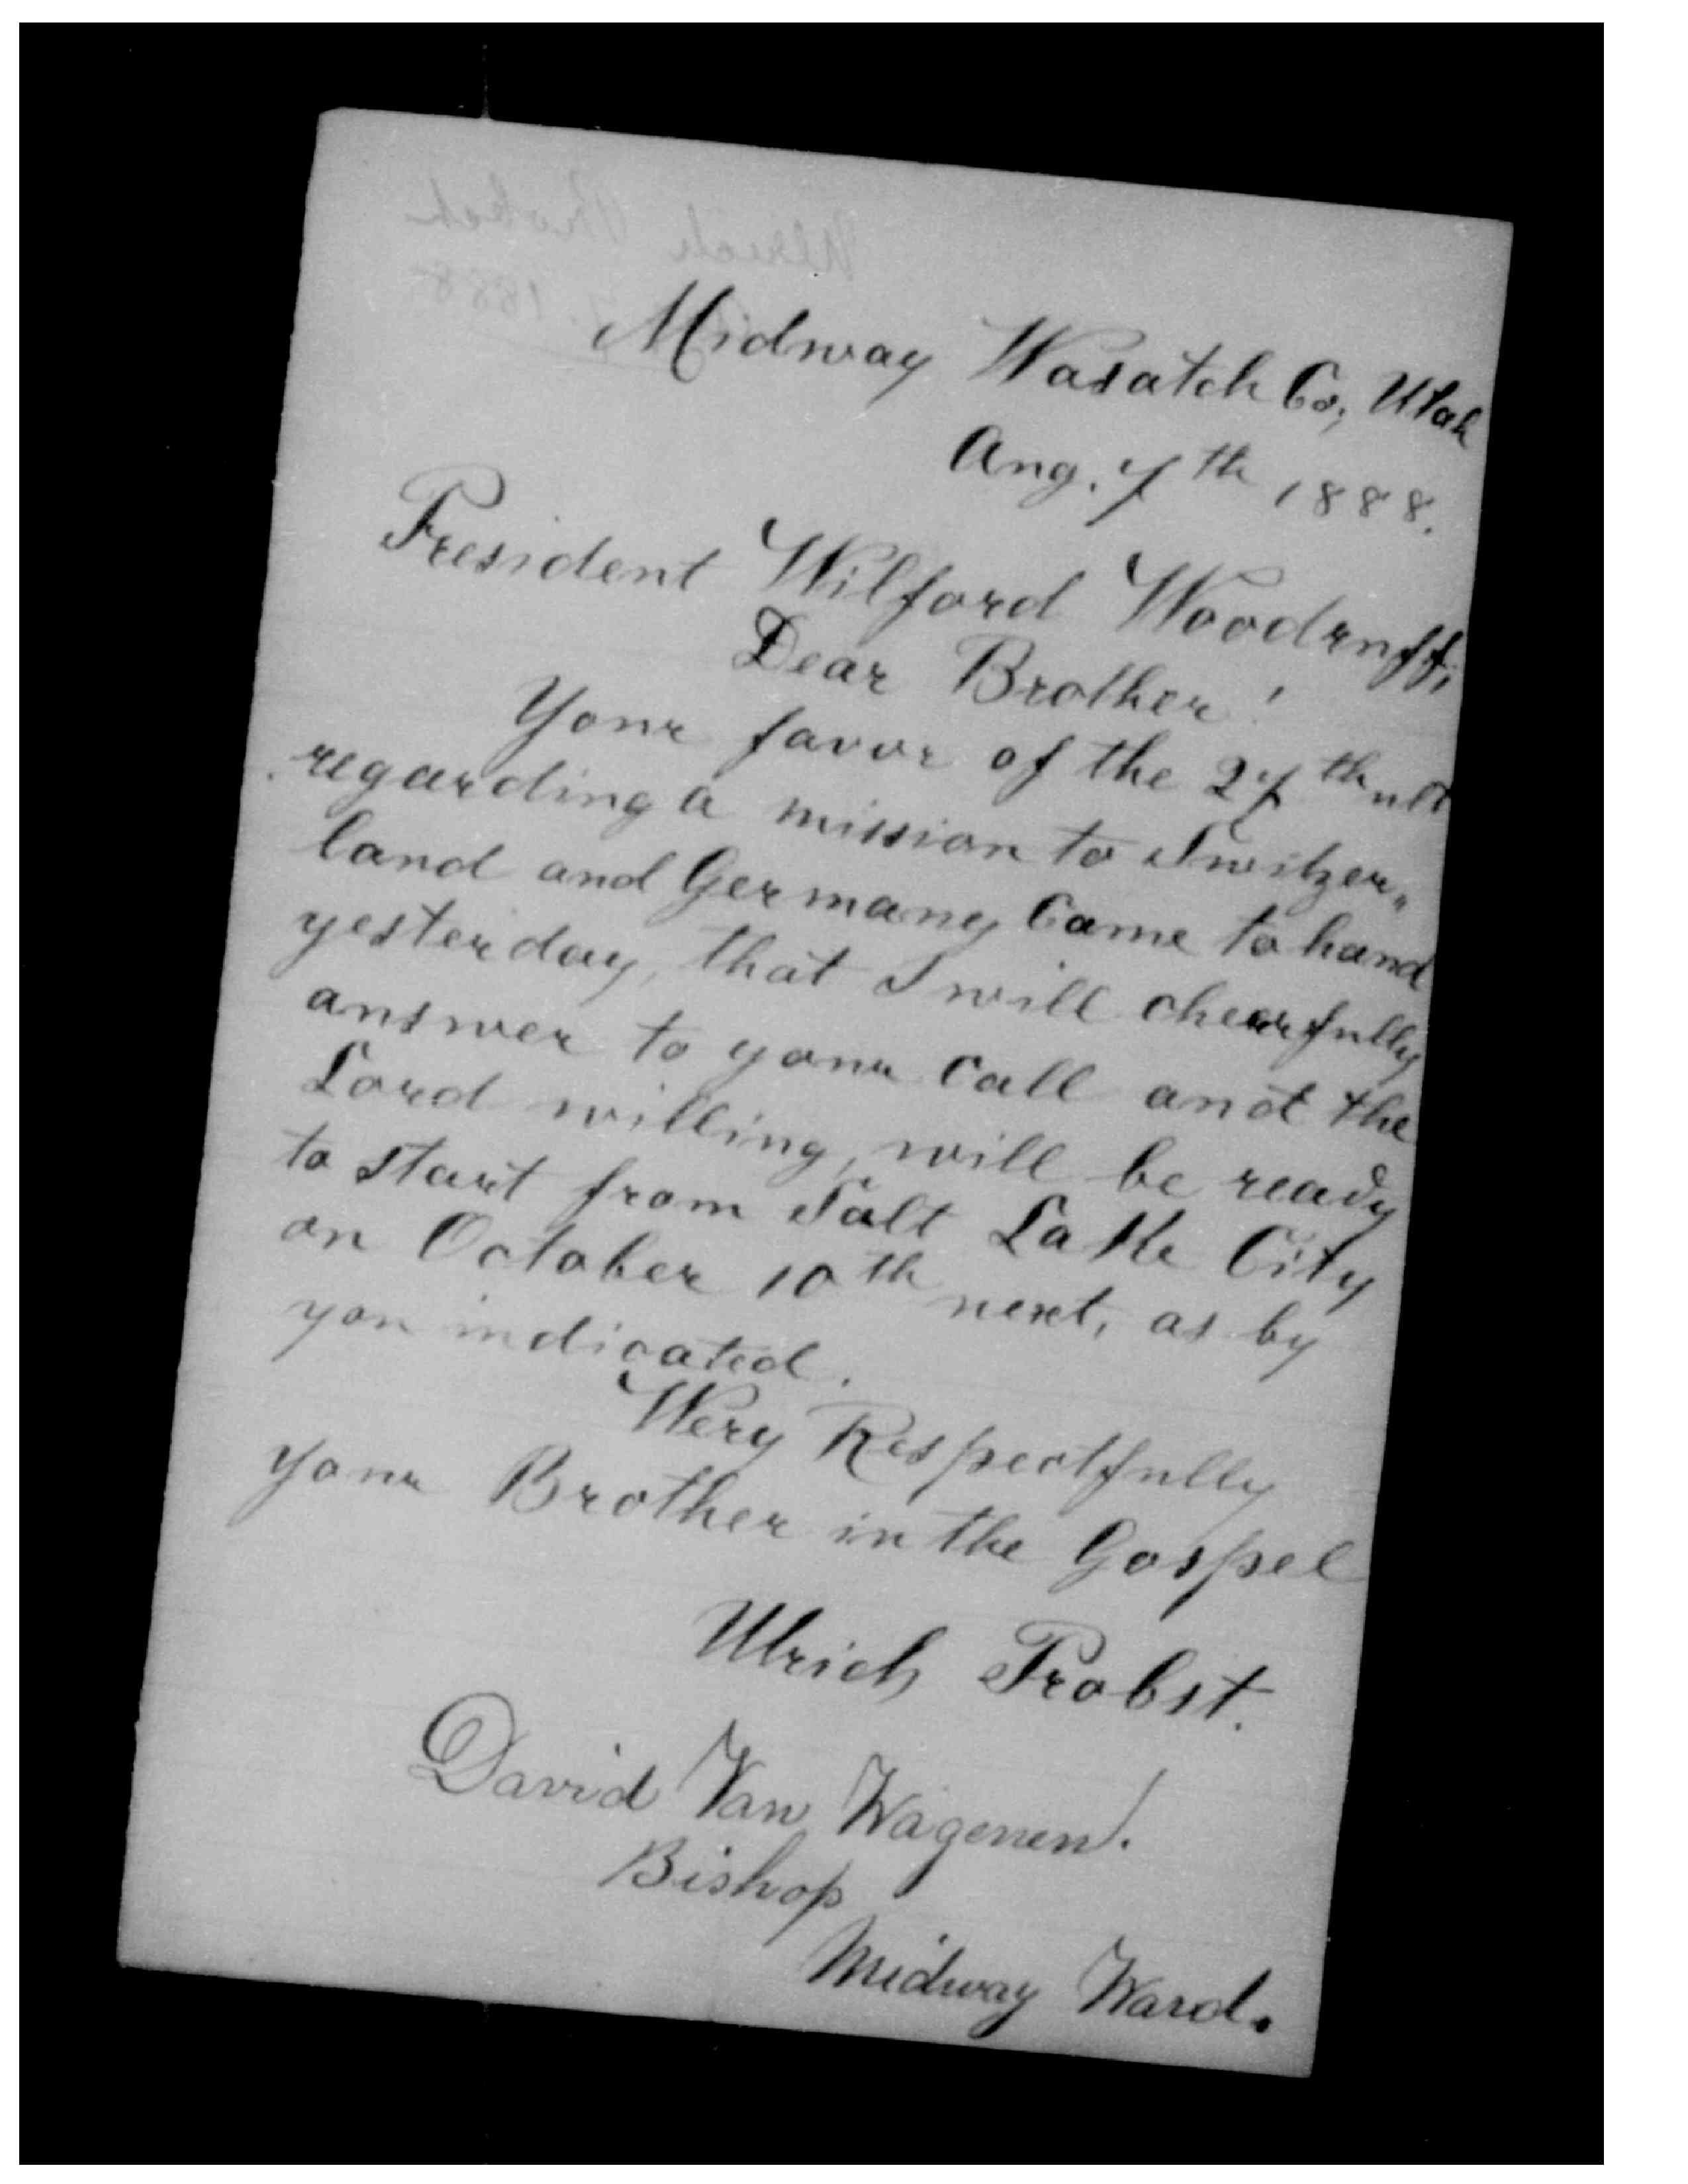 Midway Wasatch Co, Utah
Aug. 7th 1888.
President Wilford Woodruff;
Dear Brother!
Your favor of the 27th ult
regarding a mission to Switzer„
land and Germany Came to hand
yesterday, that I will cheerfully
answer to your Call and the
Lord willing, will be ready
to start from Salt Lake City
on October 10th next, as by
you indicated.
Wery Respectfully
your Brother in the Gospel
Ulrich Probst.
David Van Wagenen.
Bishop
Midway Ward.